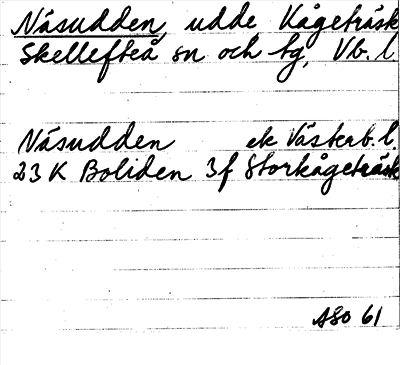 Näsudden, udde Kågeträsk
Skellefteå sn och tg, Vb. l.
Näsudden ek Västerb. l.
23 K Boliden 3f Storkågeträsk
ASO 61